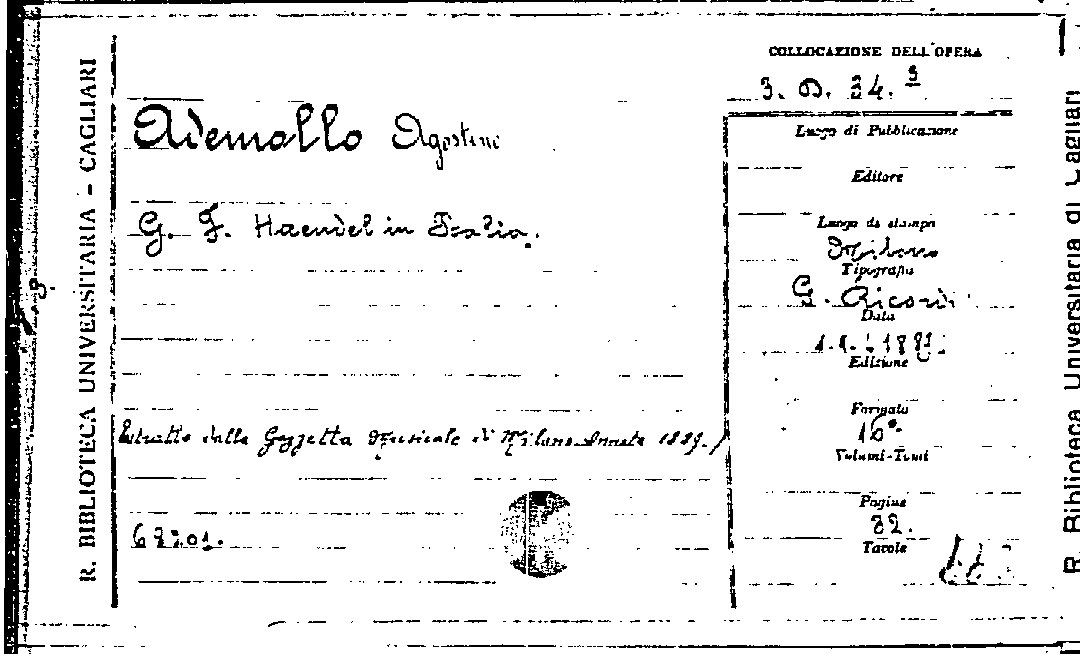 R. BIBLIOTECA UNIVERSITARIA - CAGLIARI
COLLOCAZIONE DELL'OPERA
3. D. 34. 3
Ademollo Agostino
G. F. Haendel in Italia.
Estratto dalla Gazzetta Musicale di Milano Annata 1889.)
Luogo di Pubblicazione
Editore
Luogo di stampa
Milano
Tipografia
G. Ricordi
Data
Edizione
Formato
16°
Volumi-Tomi
Pagine
Tavole
R. Biblioteca Universitaria di Cagliari